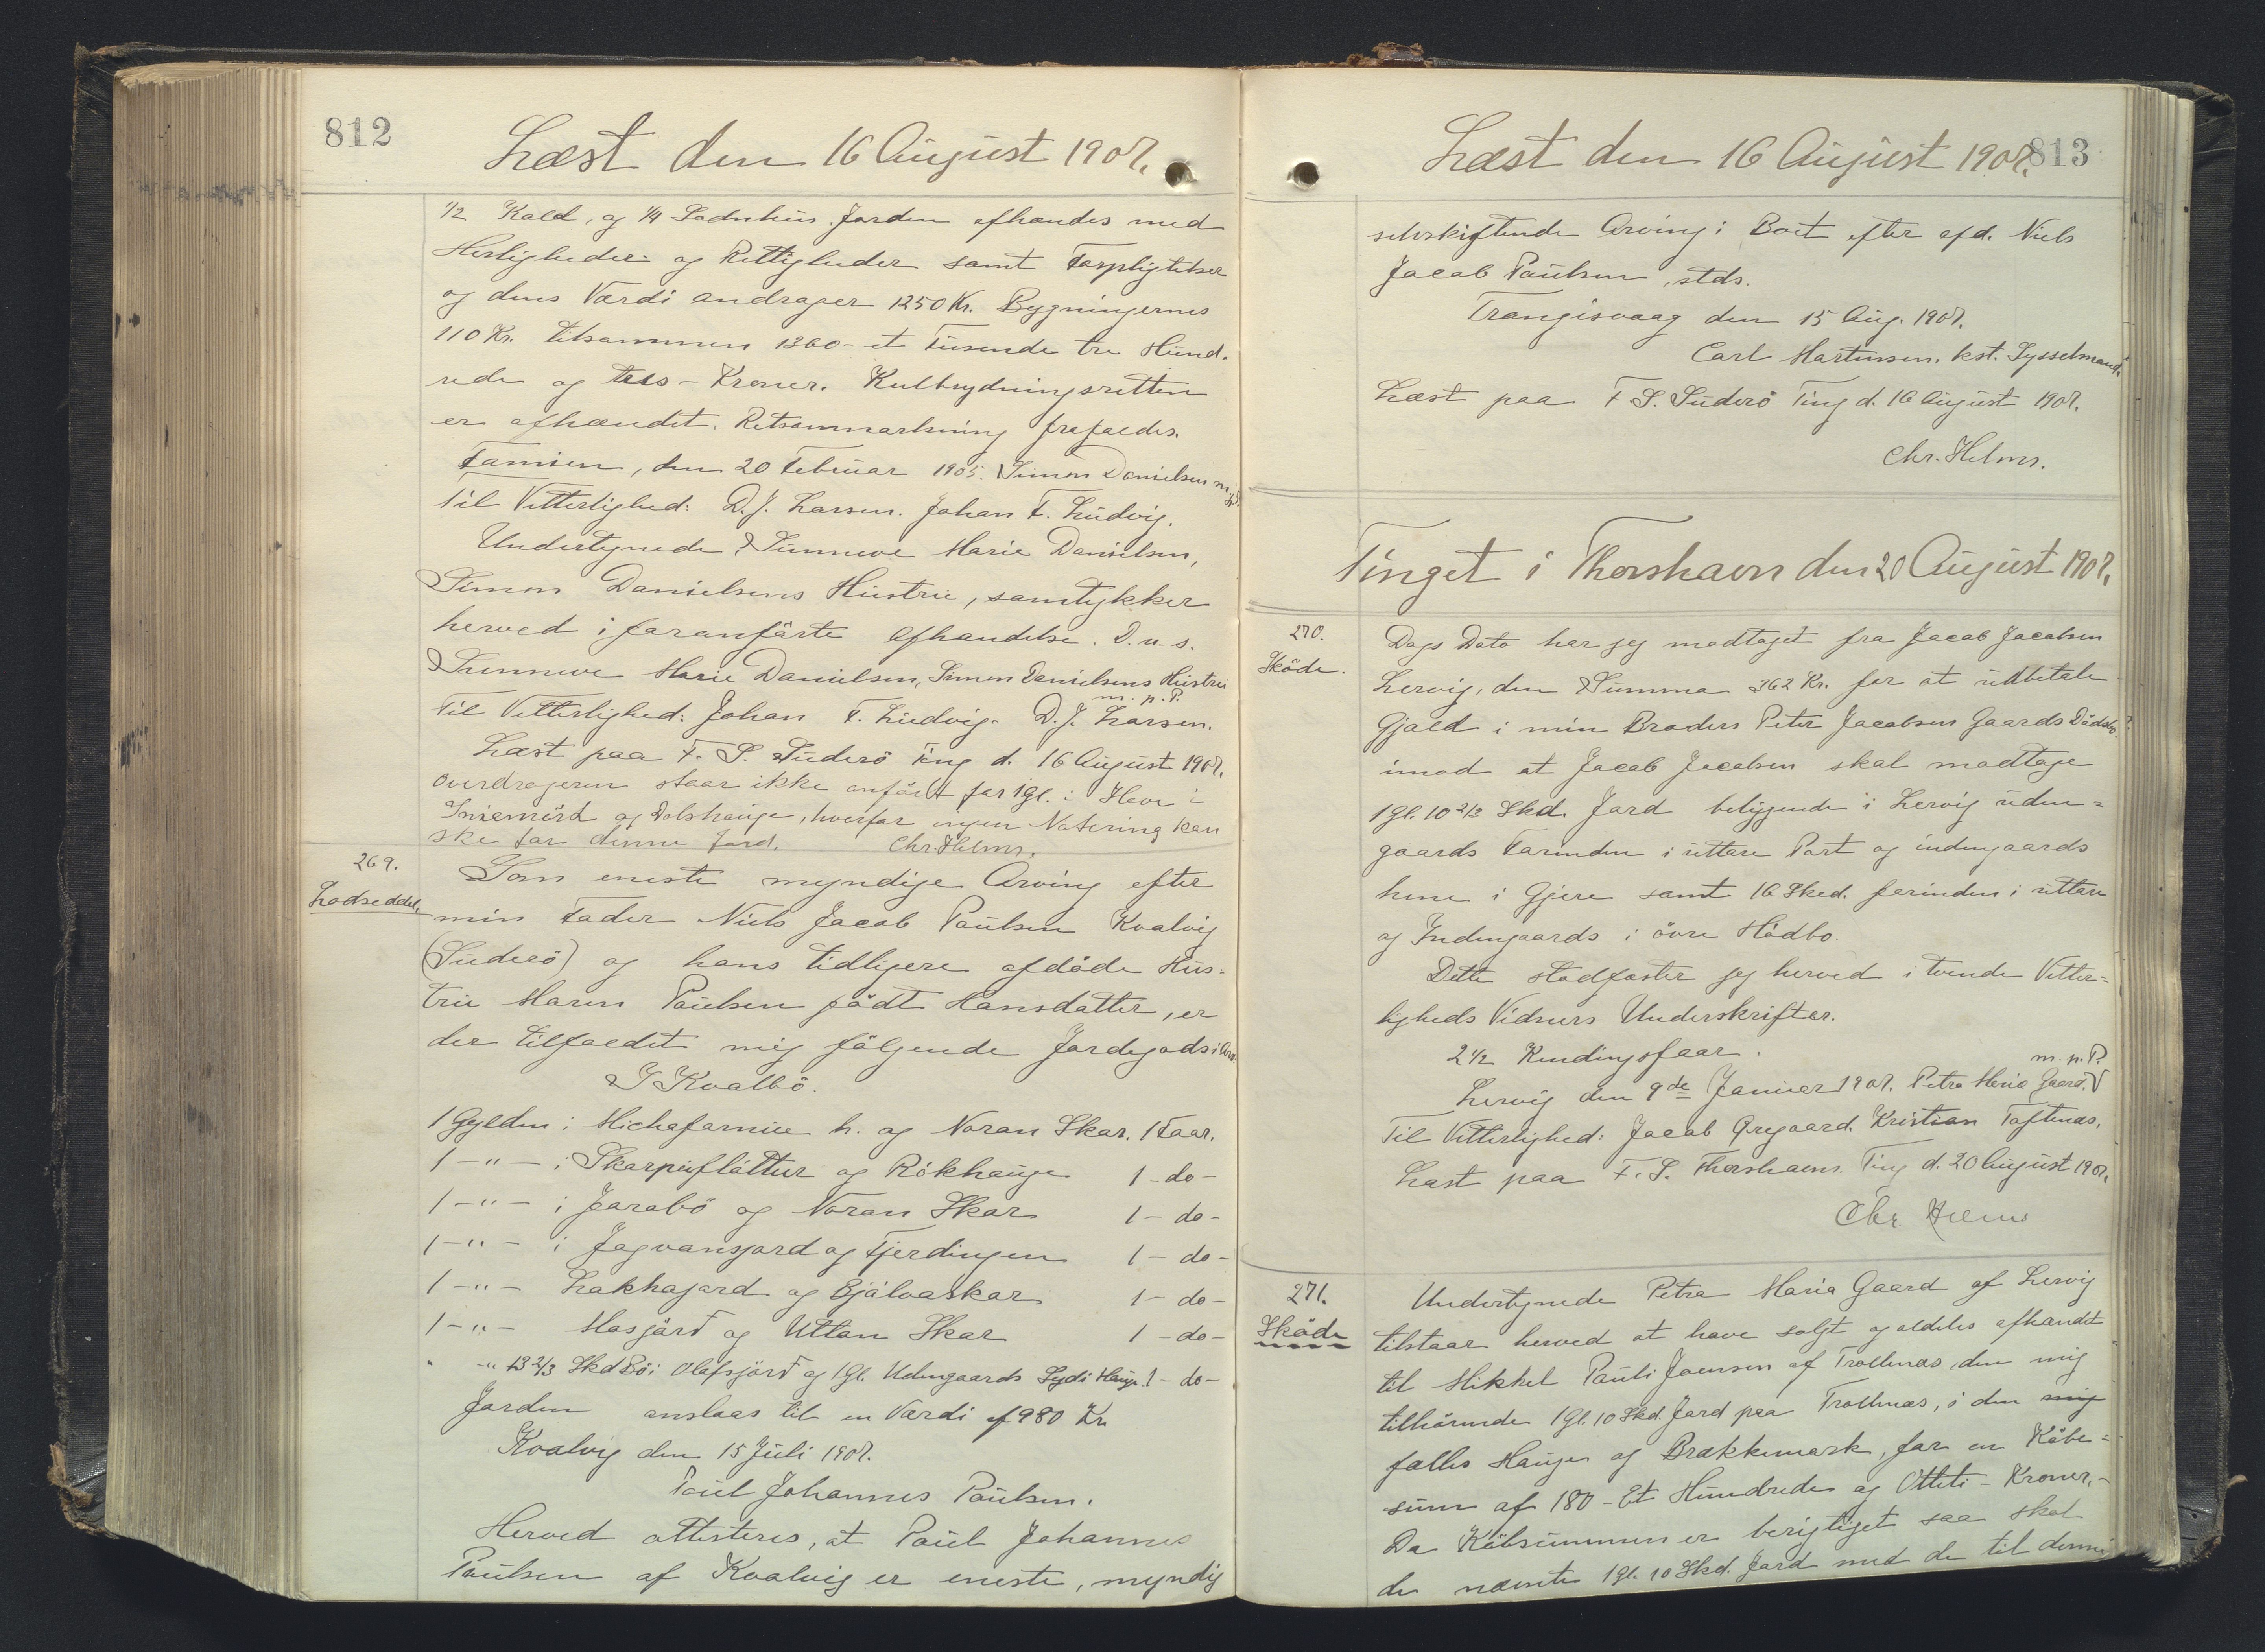 812
Læst den 16 August 1907.
1/2 Kald, og 1/4 Sodnhus. Jorden afhændes med
Herligheder og Rettigheder samt Forpligtelser
og dens Værdi andrager 1250 Kr. Bygningernes
110 Kr. tilsammen 1360 - et Tusende tre Hund-
rede og tres - Kroner. Kulbrydningsretten
er afhændet. Retsanmærkning frafaldes.
Famien, den 20 Februar 1905. Simon Danielsen m.p.P.
Til Vitterlighed: D.J. Larsen. Johan F. Ludvig.
Undertegnede, Sunneve Marie Danielsen,
Simon Danielsens Hustru, samtykker
herved i foranførte Afhændelse. D.u.s.
Sunneve Marie Danielsen, Simon Danielsens Hustru
m.p.P.
Til Vitterlighed: Johan F. Ludvig. D.J. Larsen.
Læst paa F. S. Suderö Ting d. 16 August 1907.
Overdrageren staar ikke anført for 1 Gl. i Have i
og Dolshauge, hvorfor ingen Notering kan
ske for denne Jord. Chr. Helms.
269.
Lodseddel.
Som eneste myndige Arving efter
min Fader Niels Jacob Paulsen Kvalvig
(Suderö) og hans tidligere afdøde Hus-
tru Maren Paulsen født Hansdatter, er
der tilfaldet mig følgende Jordegods i Arv.
I Kvalbö.
1 Gylden i Michafarniu h. og Noran Skar. 1 Faar.
1 - " - i Skarpuflöttur og Rökhauge 1 - do -
1 - " - i Jarabö og Noran Skar 1 - do -
1 - " - i Jagvansjord og Fjerdingen 1 - do -
1 - " - Lakhagard og Gjálvaskar 1 - do -
1 - " - Masjörd og Uttan Skar 1 - do -
" - " 13 2/3 Skd Bö i Olafsjörd og 1 Gl. Udengaards Sydi Hauge 1 - do -
Jorden anslaas til en Værdi af 980 Kr
Kvalvig den 15 Juli 1907.
Poul Johannes Poulsen.
Herved attesteres, at Poul Johannes
Poulsen af Kvalvig er eneste, myndig
813
Læst den 16 August 1907.
selvskiftende Arving i Boet efter afd. Niels
Jacob Paulsen, stds.
Trangisvaag den 15 Aug. 1907.
Carl Mortensen. kst. Sysselmand.
Læst paa F S. Suderö Ting d. 16 August 1907.
Chr. Helms.
Tinget i Thorshavn den 20 August 1907.
270.
Skøde.
Dags Dato har jeg modtaget fra Jacob Jacobsen
Lervig, den Summa 362 Kr. for at udbetale
Gjæld i min Broders Peter Jacobsen Gaards Dødsbo?
imod at Jacob Jacobsen skal modtage
1 Gl. 10 2/3 Skd. Jord beliggende i Lervig uden-
gaards Farinden i uttare Part og indengaards
hene i Gjere samt 16 Sked. farinden i uttare
og Indengaards i övre Hødbo.
Dette stadfæster jeg herved i tvende Vitter-
ligheds Vidners Underskrifter.
2 1/2 Kendingsfaar.
Lervig den 9de Januar 1907. Petra Maria Gaard. m.p.P.
Til Vitterlighed: Jacob Øregaard. Kristian Toftenæs.
Læst paa F. S. Thorshavns Ting d. 20 August 1907.
Chr Helms
271.
Skøde
Undertegnede Petra Maria Gaard af Lervig
tilstaar herved at have solgt og aldeles afhændet
til Mikkel Pauli Joensen af Trollnæs, den mig
tilhørende 1 Gl. 10 Skd. Jord paa Trollnæs, i den mig
fælles Hauge og Brækkemark, for en Købe-
sum af 180 - Et Hundrede og Otteti - Kroner.-
Da Købsummen er berigtiget saa skal
de nævnte 1 Gl. 10 Skd. Jord med de til denne